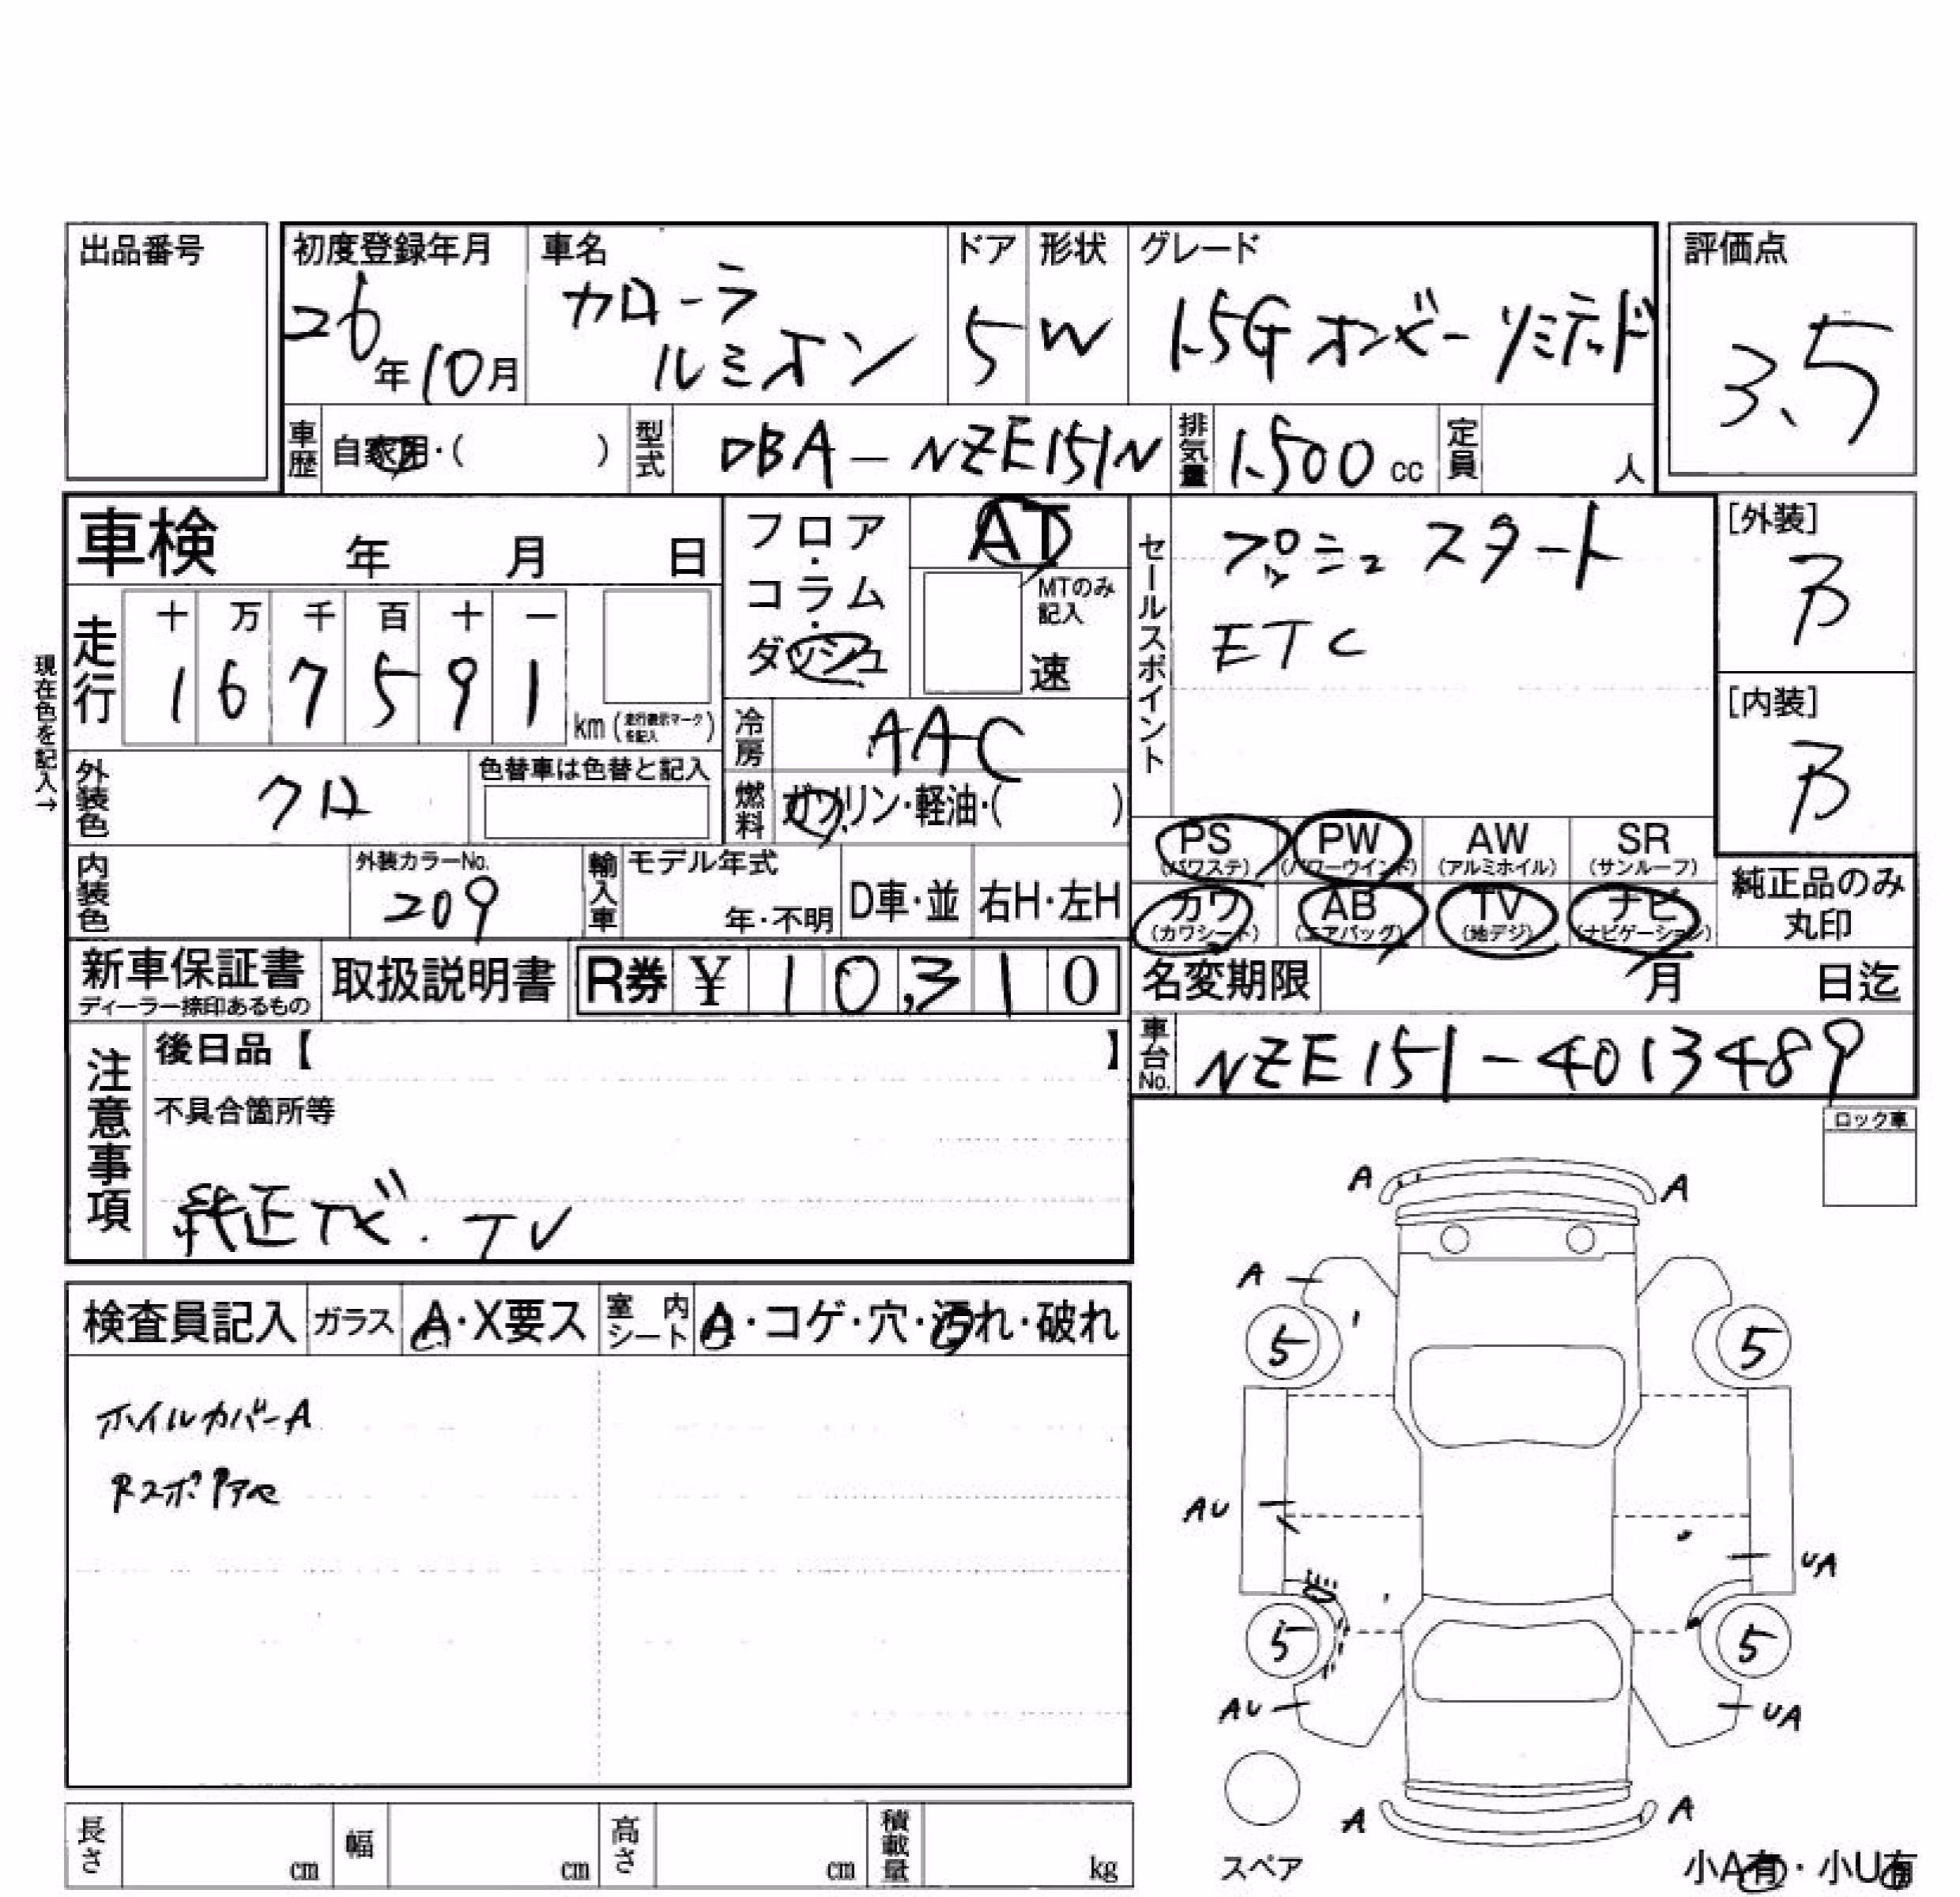 出品番号
初度登録年月
26年10月
車名
カローラ
ルミオン
ドア
5
形状
W
グレード
1.5G オンビーリミテッド
評価点
3.5
車歴
自家用・( )
型式
DBA-NZE151N
排気量
1.500 cc
定員
人
車検 年 月 日
フロア・コラム・ダッシュ
AT
MTのみ記入
速
セールスポイント
プッシュスタート
ETC
[外装]
B
[内装]
B
現在色を記入→
走行
十 万 千 百 十 一
1 6 7 5 9 1
km(走行表示マークを記入)
冷房
AAC
外装色
クロ
色替車は色替と記入
燃料
ガソリン・軽油・( )
PS
(パワステ)
PW
(パワーウインド)
AW
(アルミホイル)
SR
(サンルーフ)
内装色
外装カラーNo.
209
輸入車
モデル年式
年・不明
D車・並
右H・左H
カワ
(カワシート)
AB
(エアバッグ)
TV
(地デジ)
ナビ
(ナビゲーション)
純正品のみ
丸印
新車保証書
ディーラー捺印あるもの
取扱説明書
R券 ¥ 10,310
名変期限 月 日迄
車台No.
NZE151-4013489
注意事項
後日品【 】
不具合箇所等
純正ナビ.TV
ロック車
検査員記入
ガラス
A・X要ス
室内シート
A・コゲ・穴・汚れ・破れ
ホイルカバーA
A A
A
5 5
AU
UA
5 5
AU UA
A A
スペア
小A有・小U有
長さ cm
幅 cm
高さ cm
積載量 kg